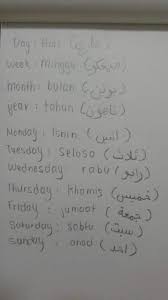 Day : Hari (هاري)
week : Minggu (ميڠݢو)
month : bulan (بولن)
year : tahun (تاهون)
Monday : Isnin (اثنين)
Tuesday : Selasa (ثلاث)
Wednesday rabu (رابو)
Thursday : khamis (خميس)
Friday : jumaat (جمعة)
Saturday : sabtu (سبت)
sunday : ahad (احد)